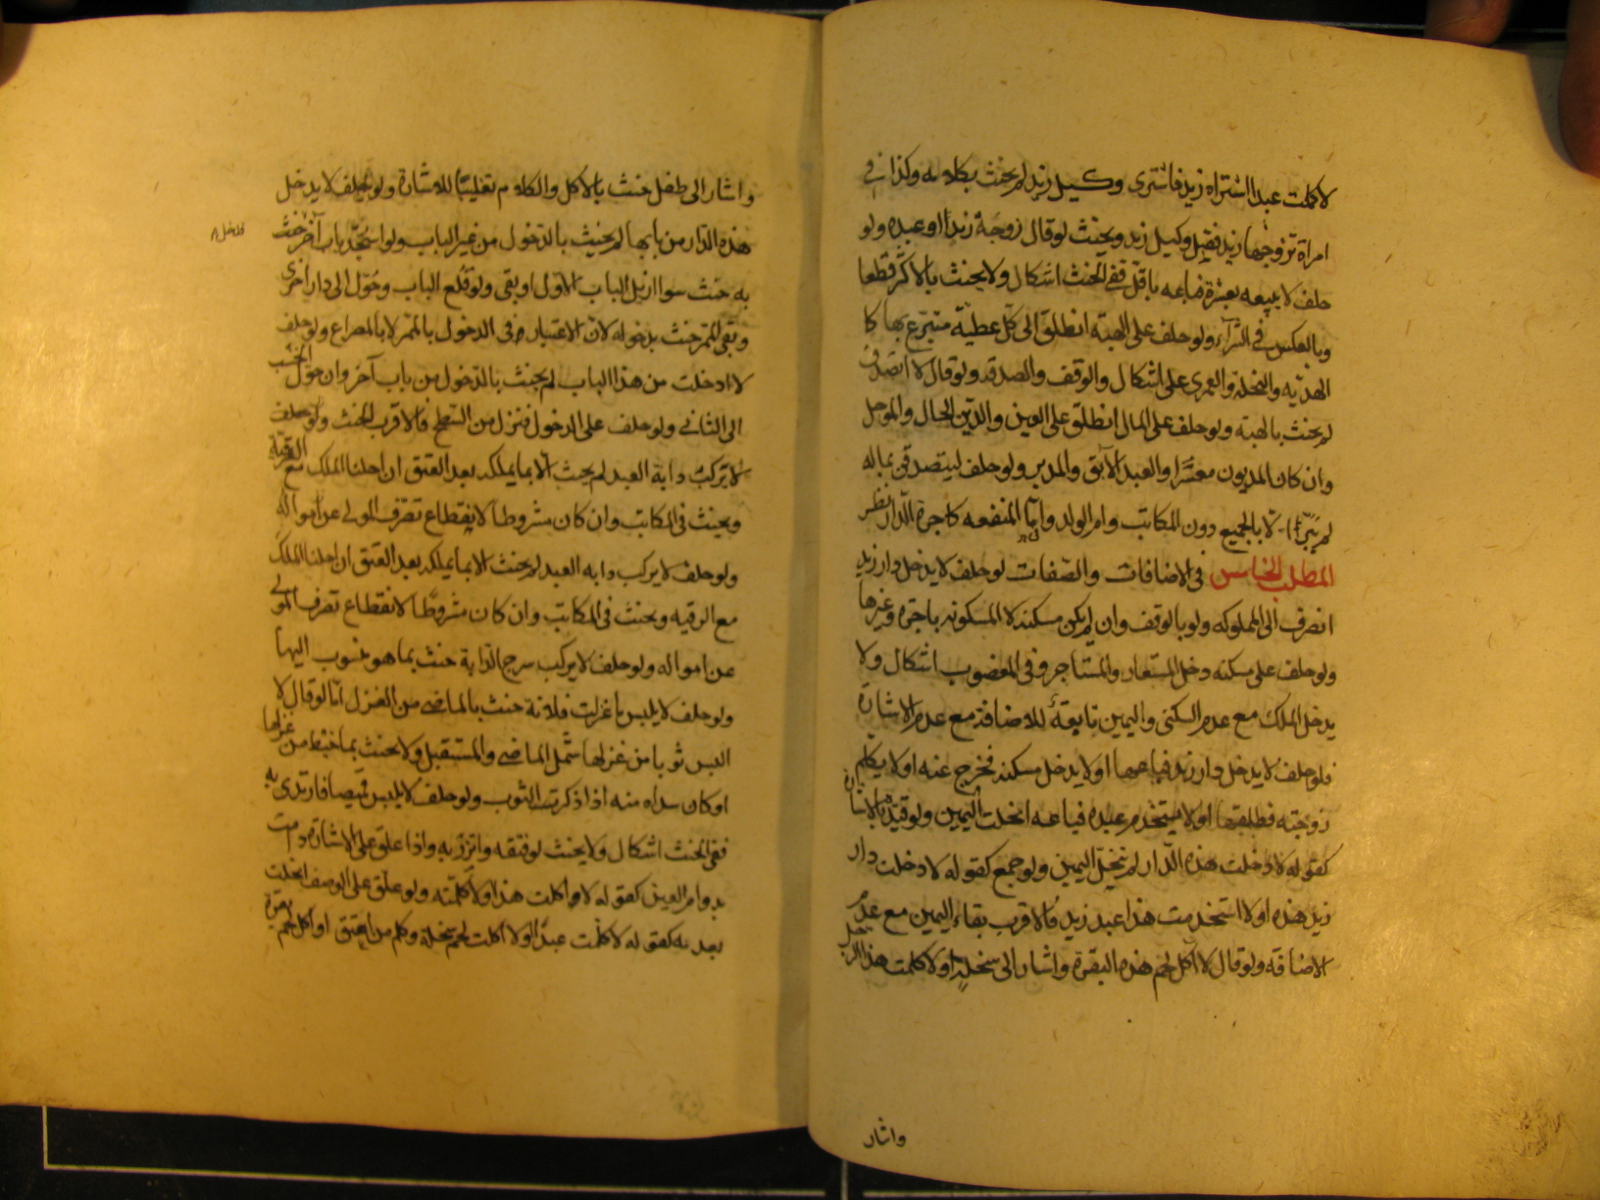 لا كلمت عبدا اشتراه زيد فاشترى وكيل زيد لم يحنث بكلامه وكذا في
امراة تزوجها زيد فقبل وكيل زيد ويحنث لو قال زوجة زيد او عبده ولو
حلف لا يبيعه بعشرة فباعه باقل ففي الحنث اشكال ولا يحنث بالاكثر قطعا
وبالعكس في الشراء ولو حلف على الهبة انطلق الى كل عطية متبرع بها كا
لهدية والنحلة والعمرى على اشكال والوقف والصدقه ولو قال لا اتصدق
لم يحنث بالهبة ولو حلف على المال انطلق على العين والدين الحال والموجل
وان كان المديون معسرا والعبد الآبق والمدبر ولو حلف ليتصدقن بماله
لم يبرء الا بالجميع دون المكاتب وام الولد واما المنفعه كاجرة الدار نظر
المطلب الخامس في الاضافات والصفات لو حلف لا يدخل دار زيد
انصرف الى المملوكه ولو بالوقف وان لم يكن مسكنه لا المسكونه باجرة وغيرها
ولو حلف على مسكنه دخل المستعار والمستاجر وفي المغصوب اشكال ولا
يدخل الملك مع عدم السكنى واليمين تابعة للاضافة مع عدم الاشارة
فلو حلف لا يدخل دار زيد فباعها او لا يدخل مسكنه فخرج عنه او لا يكلم
زوجته فطلقها او لا يستخدم عبده فباعه انحلت اليمين ولو قيد بالاشارة
كقوله لا دخلت هذه الدار لم تنحل اليمين ولو جمع كقوله لا دخلت دار
زيد هذه او لا استخدمت هذا عبد زيد فالاقرب بقاء اليمين مع عدم
الاضافه ولو قال لا آكل لحم هذه البقرة واشار الى سخلة او لا كلمت هذا الرجل
واشار
واشار الى طفل حنث بالاكل والكلام تغليبا للاشارة ولو حلف لا يدخل
هذه الدار من بابها لم يحنث بالدخول من غير الباب ولو استجد باب آخر حنث
به حنث سوا ازيل الباب الاول او بقي ولو قلع الباب وحول الى دار اخرى
وبقي الممر حنث بدخوله لان الاعتبار في الدخول بالممر لا بالمصراع ولو حلف
لا دخلت من هذا الباب لم يحنث بالدخول من باب آخر وان حول الخشب
الى الثاني ولو حلف على الدخول فنزل من السطح فالاقرب الحنث ولو حلف
لا يركب دابة العبد لم يحنث الا بما يملكه بعد العتق ان احلنا الملك مع الرقية
ويحنث في المكاتب وان كان مشروطا لانقطاع تصرف المولى عن امواله
ولو حلف لا يركب دابه العبد لم يحنث الا بما يملكه بعد العتق ان احلنا الملك
مع الرقيه ويحنث في المكاتب وان كان مشروطا لانقطاع تصرف المولى
عن امواله ولو حلف لا يركب سرج الدابة حنث بما هو منسوب اليها
ولو حلف لا يلبس ما غزلت فلانة حنث بالماضي من الغزل اما لو قال لا
البس ثوبا من غزلها شمل الماضي والمستقبل ولا يحنث بما خيط من غزلها
او كان سداه منه اذا ذكرت الثوب ولو حلف لا يلبس قميصا فارتدى به
ففي الحنث اشكال ولا يحنث لو فتقه واتزر به واذا علق على الاشارة دامت
بدوام العين كقوله لا اكلت هذا او لا كلمته ولو علق على الوصف انحلت
بعدمه كقوله لا كلمت عبدا او لا اكلت لحم سخلة وكلم من اعتق او اكل لحم بقرة